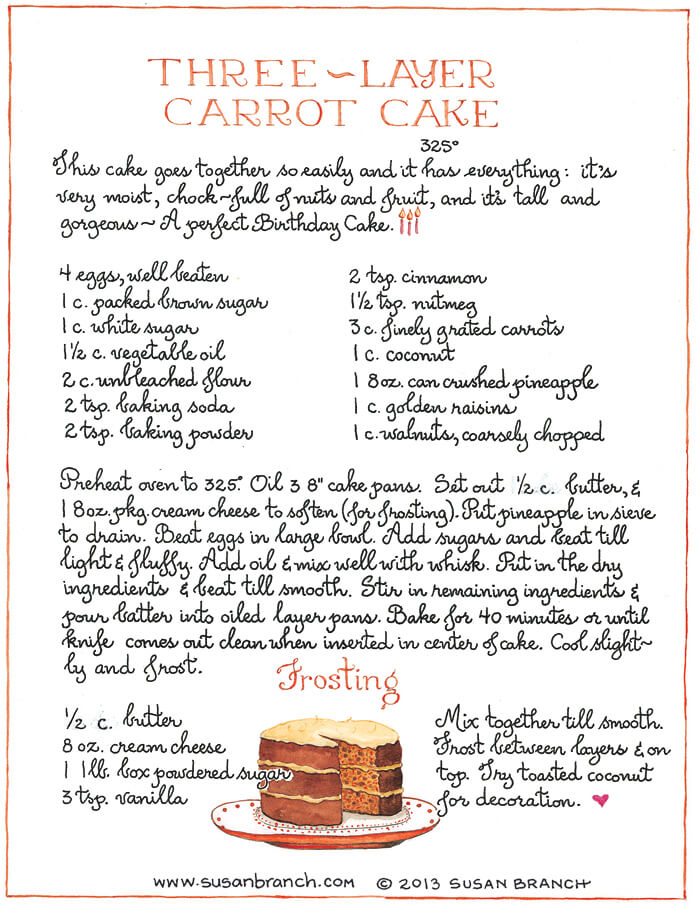 THREE~LAYER
CARROT CAKE
325°
This cake goes together so easily and it has everything: it's
very moist, chock~full of nuts and fruit, and it's tall and
gorgeous~ A perfect Birthday Cake.
4 eggs, well beaten
1 c. packed brown sugar
1 c. white sugar
1½ c. vegetable oil
2 c. unbleached flour
2 tsp. baking soda
2 tsp. baking powder
2 tsp. cinnamon
1½ tsp. nutmeg
3 c. finely grated carrots
1 c. coconut
1 8oz. can crushed pineapple
1 c. golden raisins
1 c. walnuts, coarsely chopped
Preheat oven to 325°. Oil 3 8" cake pans. Set out ½ c. butter, &
1 8oz. pkg. cream cheese to soften (for frosting). Put pineapple in sieve
to drain. Beat eggs in large bowl. Add sugars and beat till
light & fluffy. Add oil & mix well with whisk. Put in the dry
ingredients & beat till smooth. Stir in remaining ingredients &
pour batter into oiled layer pans. Bake for 40 minutes or until
knife comes out clean when inserted in center of cake. Cool slight~
ly and frost.
Frosting
½ c. butter
8 oz. cream cheese
1 1lb. box powdered sugar
3 tsp. vanilla
Mix together till smooth.
Frost between layers & on
top. Try toasted coconut
for decoration.
www.susanbranch.com © 2013 SUSAN BRANCH